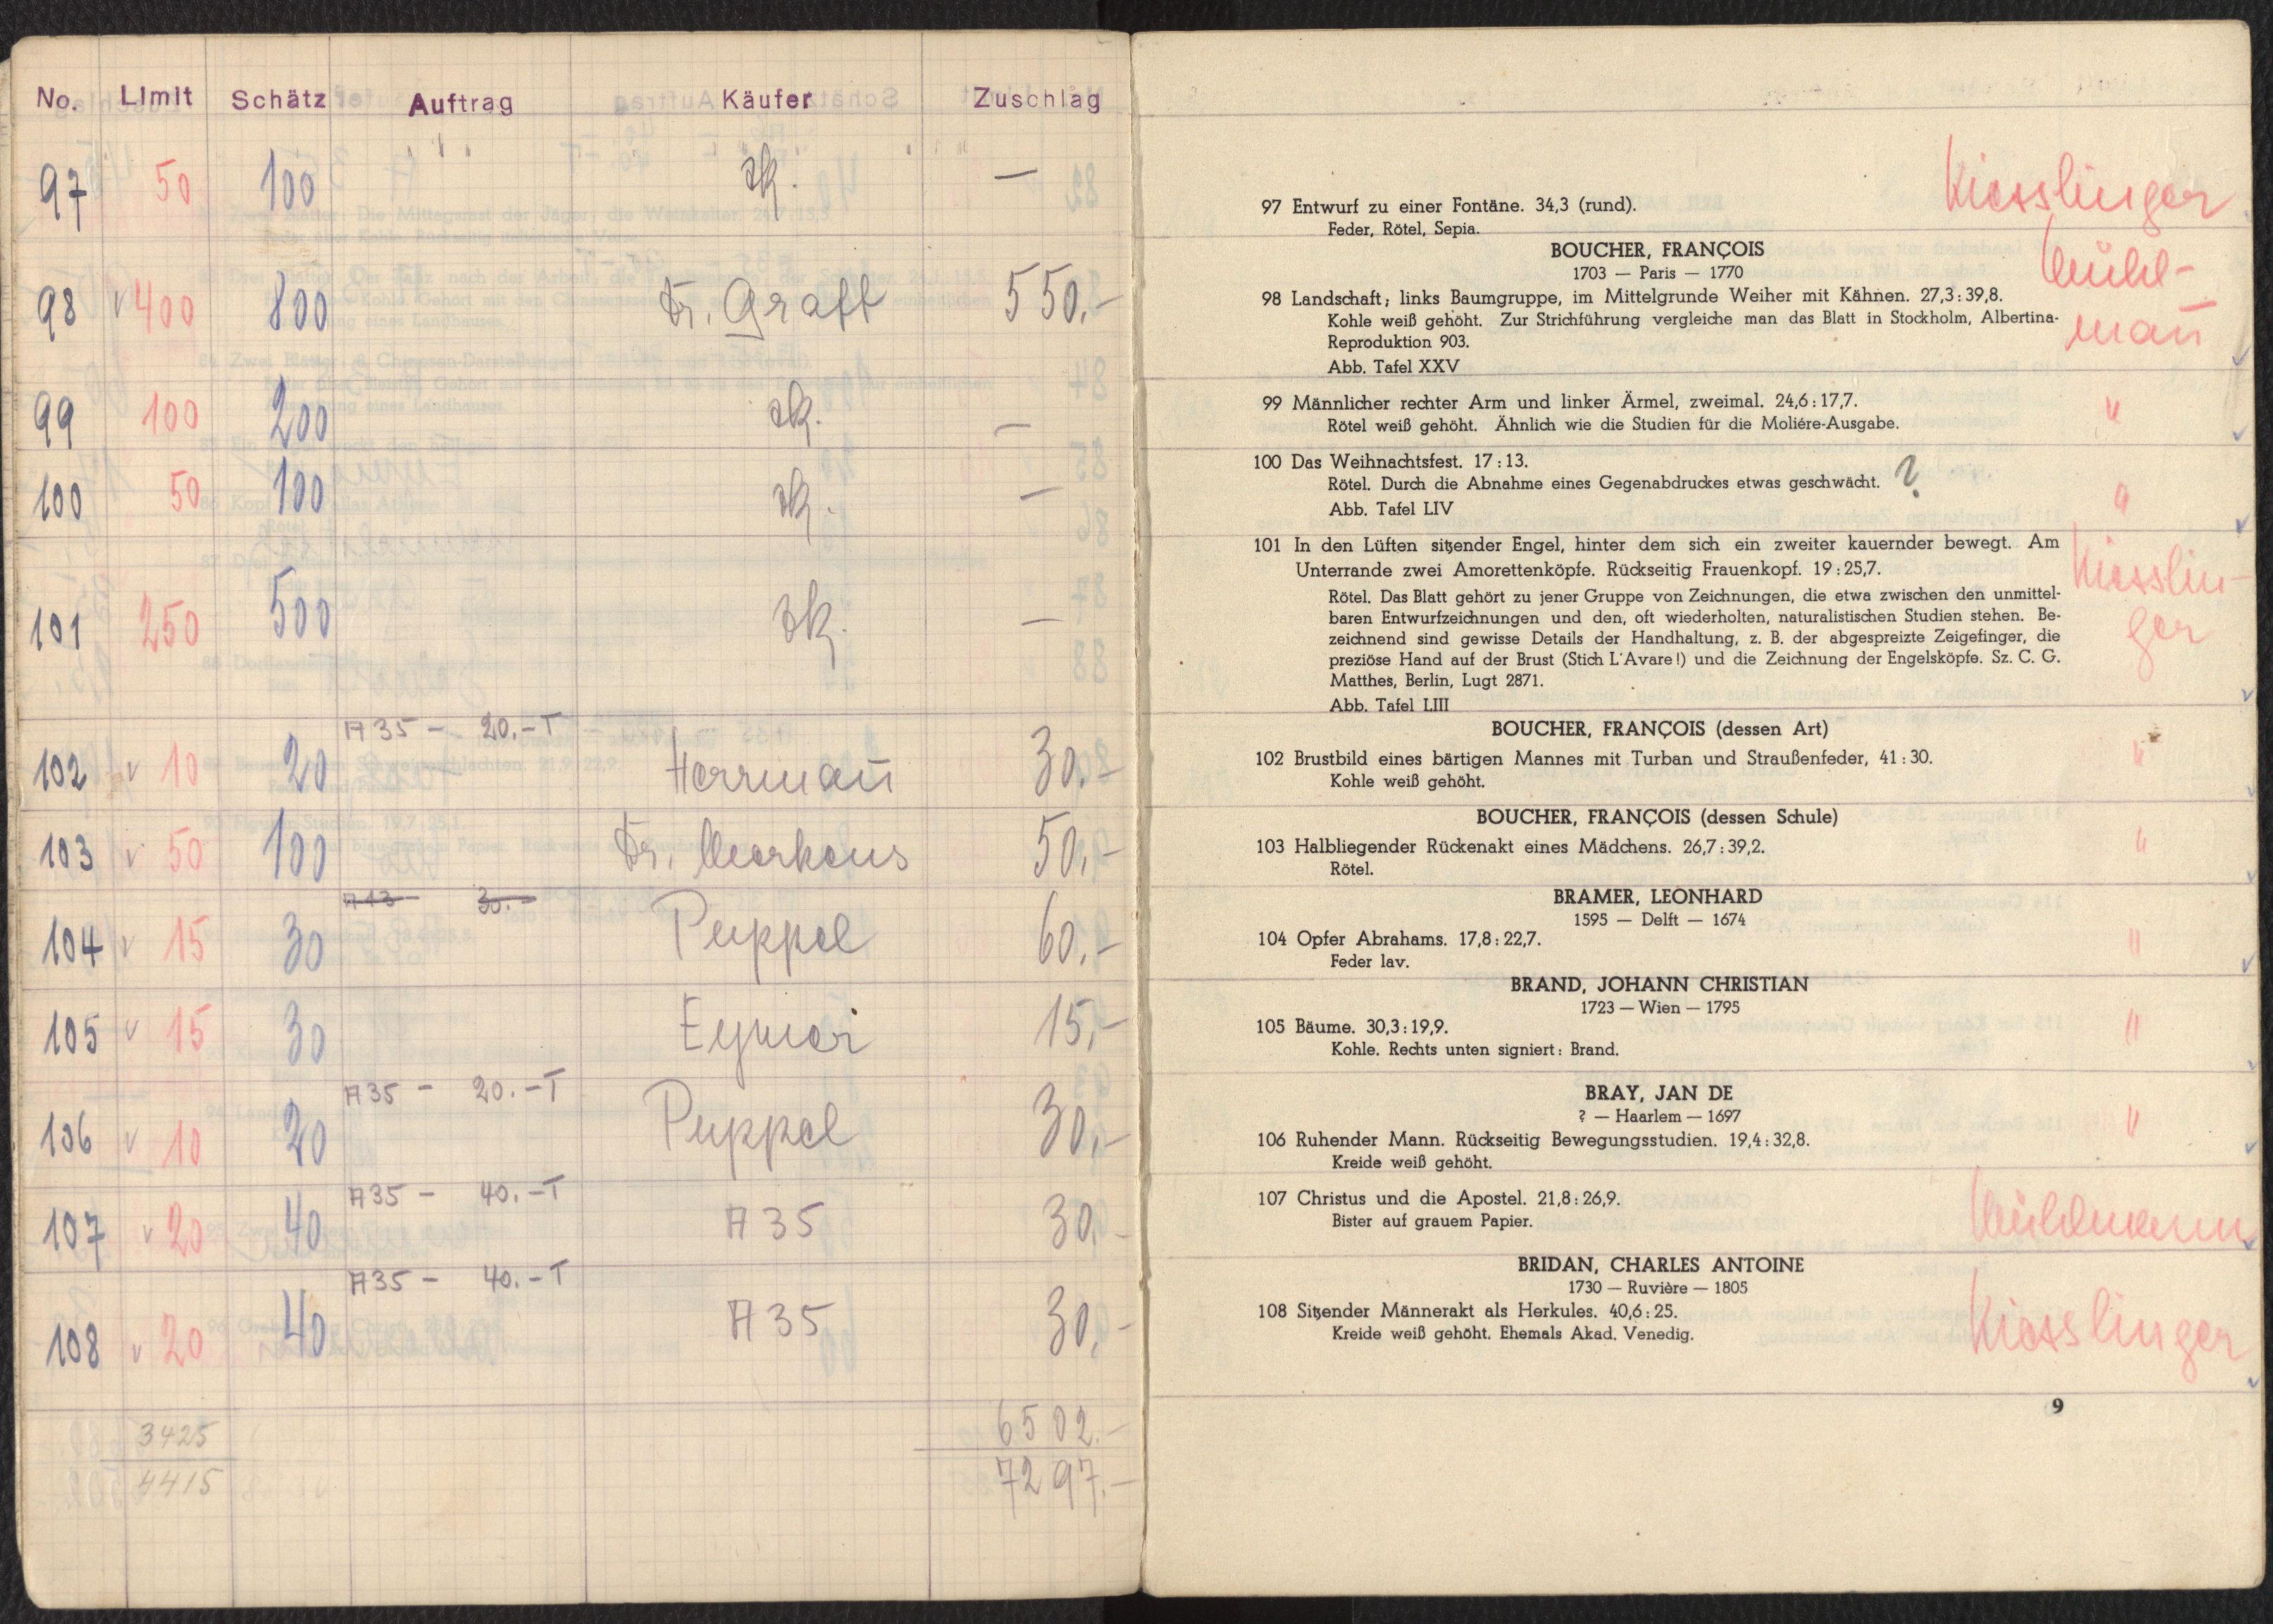 No. Limit Schätz Auftrag Käufer Zuschlag
97 50 100 zk. —
98 v 400 800 Dr. Graft 550.-
99 100 200 zk. —
100 50 100 zk. —
101 250 500 zk. —
A35 - 20.-T
102 v 10 20 Herrmañ 30.-
103 v 50 100 50.-
A13 30.-
104 v 15 30 Puppel 60.-
105 v 15 30 15.-
A35 - 20.-T
106 v 10 20 Puppel 30.-
A35 - 40.-T
107 v 20 40 A 35 30.-
A35 - 40.-T
108 v 20 40 A 35 30.-
3425 6502.-
4415 7297.-
Kiesslinger
97 Entwurf zu einer Fontäne. 34,3 (rund).
Feder, Rötel, Sepia.
BOUCHER, FRANÇOIS
1703 — Paris — 1770
Mühl-
mañ
98 Landschaft; links Baumgruppe, im Mittelgrunde Weiher mit Kähnen. 27,3 : 39,8.
Kohle weiß gehöht. Zur Strichführung vergleiche man das Blatt in Stockholm, Albertina-
Reproduktion 903.
Abb. Tafel XXV
99 Männlicher rechter Arm und linker Ärmel, zweimal. 24,6 : 17,7. "
Rötel weiß gehöht. Ähnlich wie die Studien für die Moliére-Ausgabe.
100 Das Weihnachtsfest. 17 : 13.
Rötel. Durch die Abnahme eines Gegenabdruckes etwas geschwächt. ? "
Abb. Tafel LIV
101 In den Lüften sitzender Engel, hinter dem sich ein zweiter kauernder bewegt. Am
Unterrande zwei Amorettenköpfe. Rückseitig Frauenkopf. 19 : 25,7.
Kiesslin-
ger
Rötel. Das Blatt gehört zu jener Gruppe von Zeichnungen, die etwa zwischen den unmittel-
baren Entwurfzeichnungen und den, oft wiederholten, naturalistischen Studien stehen. Be-
zeichnend sind gewisse Details der Handhaltung, z. B. der abgespreizte Zeigefinger, die
preziöse Hand auf der Brust (Stich L'Avare!) und die Zeichnung der Engelsköpfe. Sz. C. G.
Matthes, Berlin, Lugt 2871.
Abb. Tafel LIII
BOUCHER, FRANÇOIS (dessen Art)
102 Brustbild eines bärtigen Mannes mit Turban und Straußenfeder, 41 : 30. "
Kohle weiß gehöht.
BOUCHER, FRANÇOIS (dessen Schule)
103 Halbliegender Rückenakt eines Mädchens. 26,7 : 39,2. "
Rötel.
BRAMER, LEONHARD
1595 — Delft — 1674
104 Opfer Abrahams. 17,8 : 22,7. "
Feder lav.
BRAND, JOHANN CHRISTIAN
1723 — Wien — 1795
105 Bäume. 30,3 : 19,9. "
Kohle. Rechts unten signiert : Brand.
BRAY, JAN DE
? — Haarlem — 1697
106 Ruhender Mann. Rückseitig Bewegungsstudien. 19,4 : 32,8. "
Kreide weiß gehöht.
107 Christus und die Apostel. 21,8 : 26,9. Mühlmann
Bister auf grauem Papier.
BRIDAN, CHARLES ANTOINE
1730 — Ruvière — 1805
108 Sitzender Männerakt als Herkules. 40,6 : 25. Kiesslinger
Kreide weiß gehöht. Ehemals Akad. Venedig.
9